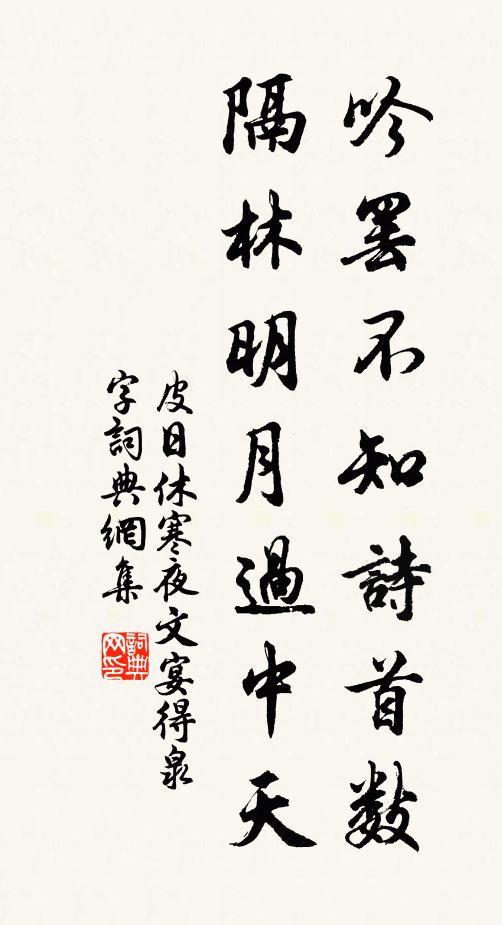 吟罷不知詩首數
隔林明月過中天
皮日休寒夜文宴得泉
字詞典網集
詞典网印